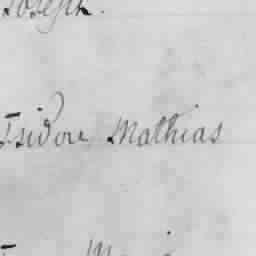 Joseph.
Isidore Mathias